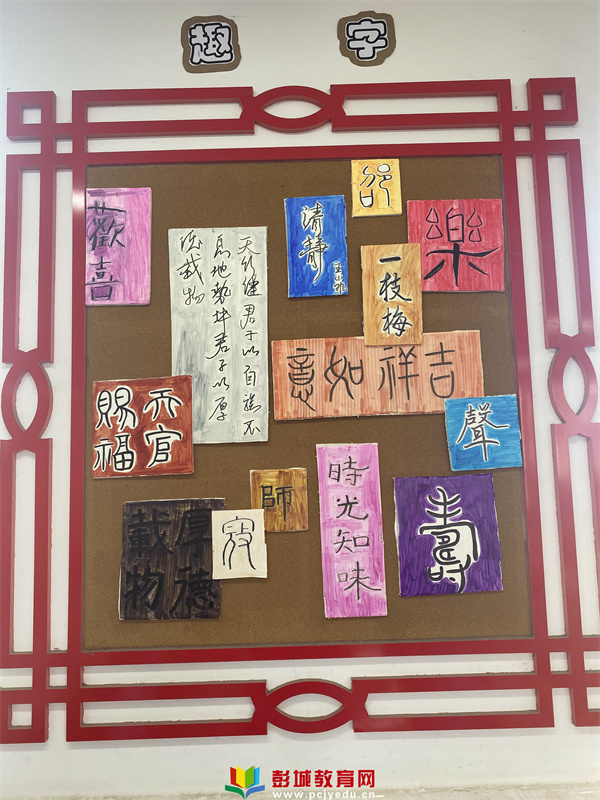 趣 字
歡喜
天行健君子以自強不
息地勢坤君子以厚
德載物
清靜
樂
一枝梅
吉祥如意
天官
賜福
聲
師
厚德
載物
時光知味
壽
彭城教育网
www.pcjyedu.cn